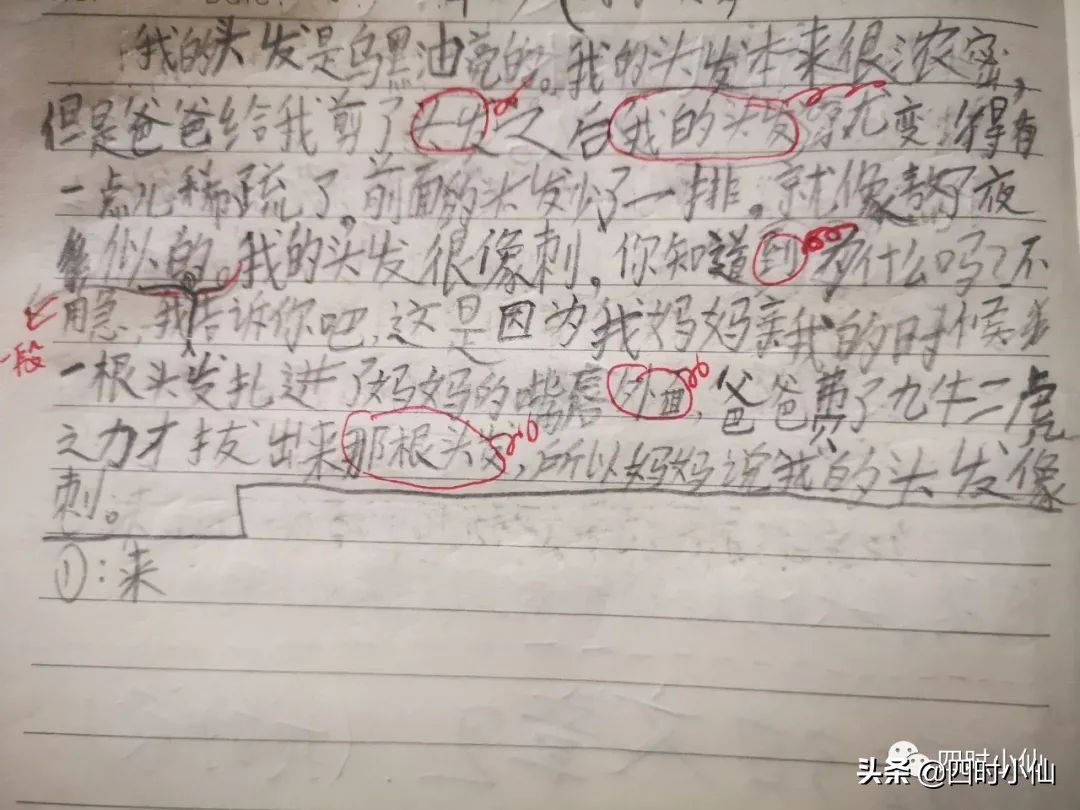 我的头发是乌黑油亮的。我的头发本来很浓密,
但是爸爸给我剪了头发之后我的头发就变得有
一点儿稀疏了。前面的头发少了一排。就像熬了夜
似的。我的头发很像刺。你知道到为什么吗?不
用急,我告诉你吧,这是因为我妈妈亲我的时候
一根头发扎进了妈妈的嘴唇外面,爸爸费了九牛二虎
之力才拔出来那根头发,所以妈妈说我的头发像
刺。
①:来
一段
四时小仙
头条 @四时小仙